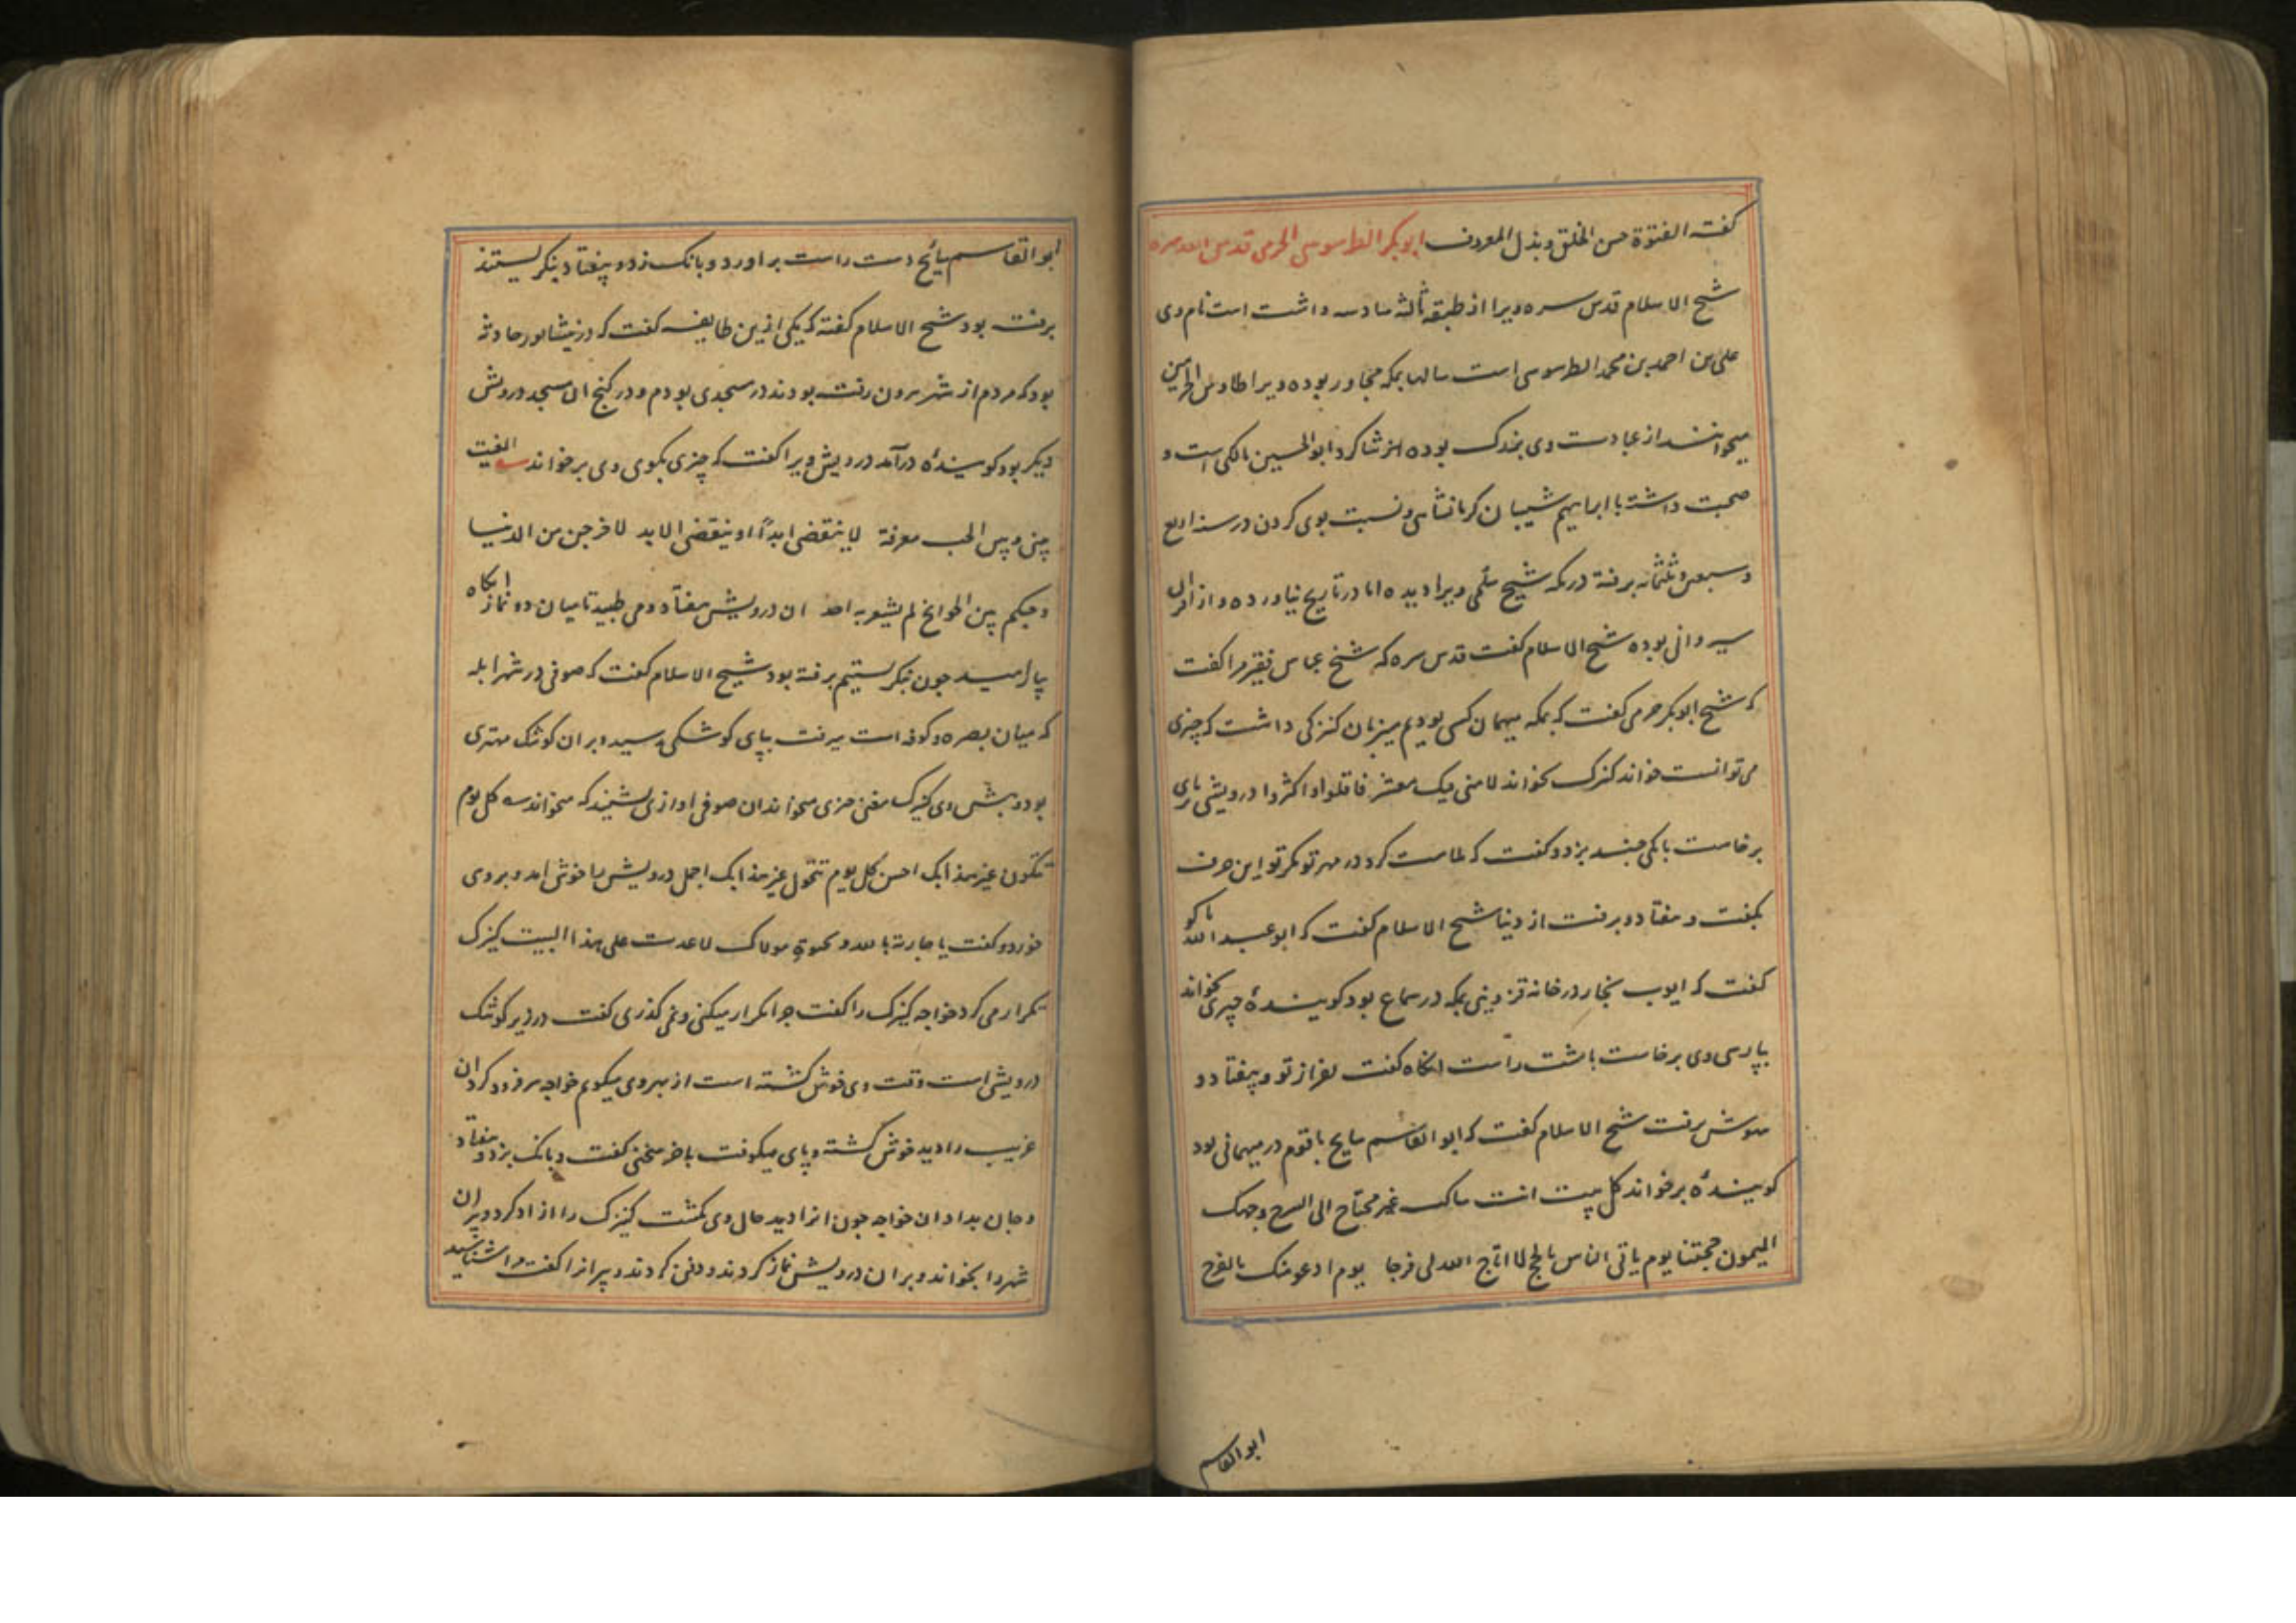 گفته الفتوة حسن الخلق وبذل المعروف ابوبکر الطرسوسی الحرمی قدس الله سره
شیخ الاسلام قدس سره ویرا از طبقه ثالثه سادسه داشت است نام وی
علی بن احمد بن محمد الطرسوسی است سالها بمکه مجاور بوده ویرا طاوس الحرمین
میخوانند از عبادت وی بزرگ بوده از شاکرد ابوالحسین مالکی است و
صحبت داشته با ابراهیم شیبان کرمانشاهی ونسبت بوی کردن در سنه اربع
وسبعین وثلثمائه برفته در مکه شیخ سلمی ویرا دیده اما در تاریخ نیاورده و از اقران
سیروانی بوده شیخ الاسلام گفت قدس سره که شیخ عباس فقیر مرا گفت
که شیخ ابوبکر حرمی گفت که بمکه میهمان کسی بودیم میزبان کنیزکی داشت که چیزی
می توانست خواند کنیزک بخواند لامنی فیک معشر فاقلوا و اکثروا درویشی بپای
برخاست بانکی چند بزد و گفت که ملامت کرد در مهر تو مگر تو این حرف
بگفت و بیفتاد و برفت از دنیا شیخ الاسلام گفت که ابوعبدالله باکو
گفت که ایوب نجار در خانه قزوینی بمکه در سماع بود گوینده چیزی بخواند
بپارسی وی برخاست باشت راست انگاه گفت لغزاز تو وبیفتاد و
بیهوش برفت شیخ الاسلام گفت که ابوالقاسم سایح با قوم در میهمانی بود
گوینده برخواند کل بیت انت ساکنه غیر محتاج الی السرج وجهک
المیمون حجتنا یوم یاتی الناس بالحج لا اتاح الله لی فرجا یوم ادعو منک بالفرج
ابوالقاسم
ابوالقاسم سائح دست راست براورد و بانک زد و بیفتاد بنگریستند
برفته بود شیخ الاسلام گفته که یکی ازین طایفه گفت که در نیشابور حادثه
بود که مردم از شهر بیرون رفته بودند در مسجدی بودم و در کنج ان مسجد درویش
دیگر بود گوینده درآمد درویش ویرا گفت که چیزی بگوی وی برخواند القیت
بینی وبین الحب معرفة لا ینقضی ابداً او ینقضی الابد لاخرجن من الدنیا
وحبکم بین الجوانح لم یشعر به احد ان درویش بیفتاد و می طپید تا میان دو نماز انگاه
بیارامید چون بنگریستیم برفته بود شیخ الاسلام گفت که صوفی در شهر ابله
که میان بصره و کوفه است میرفت بپای کوشکی رسید و بران کوشک مهتری
بود و پیش وی کنیزک مغنی چیزی میخواند ان صوفی اوازی شنید که میخواند کل یوم
تتلون غیر هذا بک احسن کل یوم تتحول غیر هذا بک اجمل درویش را خوش امد و بروی
خورد و گفت یا جاریة بالله و بحیوة مولاک لا عدت علی هذا البیت کنیزک
تکرار می کرد خواجه کنیزک را گفت چرا تکرار میکنی و نمی گذری گفت در زیر کوشک
درویشی است وقت وی خوش گشته است از بهر وی میگویم خواجه سر فرود کرد ان
غریب را دید خوش گشته و پای میکوفت باخر سخنی گفت و بانک بزد و بیفتاد
وجان بداد ان خواجه چون انرا دید حال وی بگشت کنیزک را ازاد کرد و پیران
شهر را بخواند و بران درویش نماز کردند و دفن کردند و پیرانرا گفت مرا شناسید